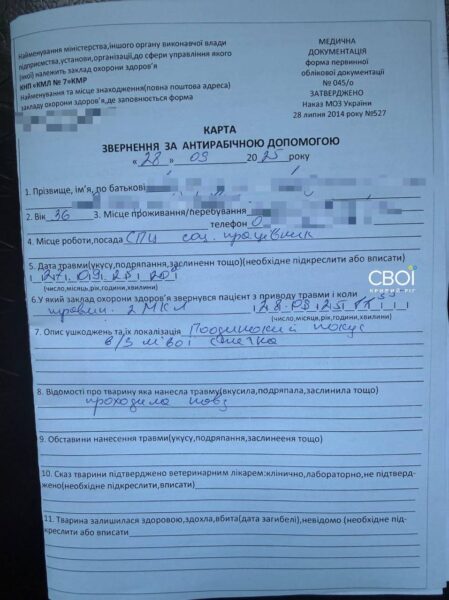 Найменування міністерства,іншого органу виконавчої влади
підприємства,установи,організації,до сфери управління якого
(якої) належить заклад охорони здоров'я
КНП «КМЛ № 7»КМР
Найменування та місце знаходження(повна поштова адреса)
закладу охорони здоров'я,де заповнюється форма
МЕДИЧНА
ДОКУМЕНТАЦІЯ
форма первинної
облікової документації
№ 045/о
ЗАТВЕРДЖЕНО
Наказ МОЗ України
28 липня 2014 року №527
КАРТА
ЗВЕРНЕННЯ ЗА АНТИРАБІЧНОЮ ДОПОМОГОЮ
« 28 » 09 2025 року
1. Прізвище, ім'я, по батькові
2. Вік 36 3. Місце проживання/перебування
телефон 0
4. Місце роботи,посада СПЦ соц. працівник
5. Дата травми(укусу,подряпання,заслиненн тощо)(необхідне підкреслити або вписати)
27.09.25
(число,місяця,рік,години,хвилини)
СВОЇ
КРИВИЙ РІГ
6.У який заклад охорони здоров'я звернувся пацієнт з приводу травми і коли
2 МКЛ 28.09.25
(число,місяць,рік,години,хвилини)
7. Опис ушкоджень та,їх локалізація Поодинокий покус
в/3 лівої
8. Відомості про тварину яка нанесла травму(вкусила,подряпала,заслинила тощо)
проходила повз
9. Обставини нанесення травми(укусу,подряпання,заслинееня тощо)
10. Сказ тварини підтверджено ветеринарним лікарем:клінично,лабораторно,не підтверд-
жено(необхідне підкреслити,вписати)
11. Тварина залишилася здоровою,здохла,вбита(дата загибелі),невідомо (необхідне під-
креслити або вписати